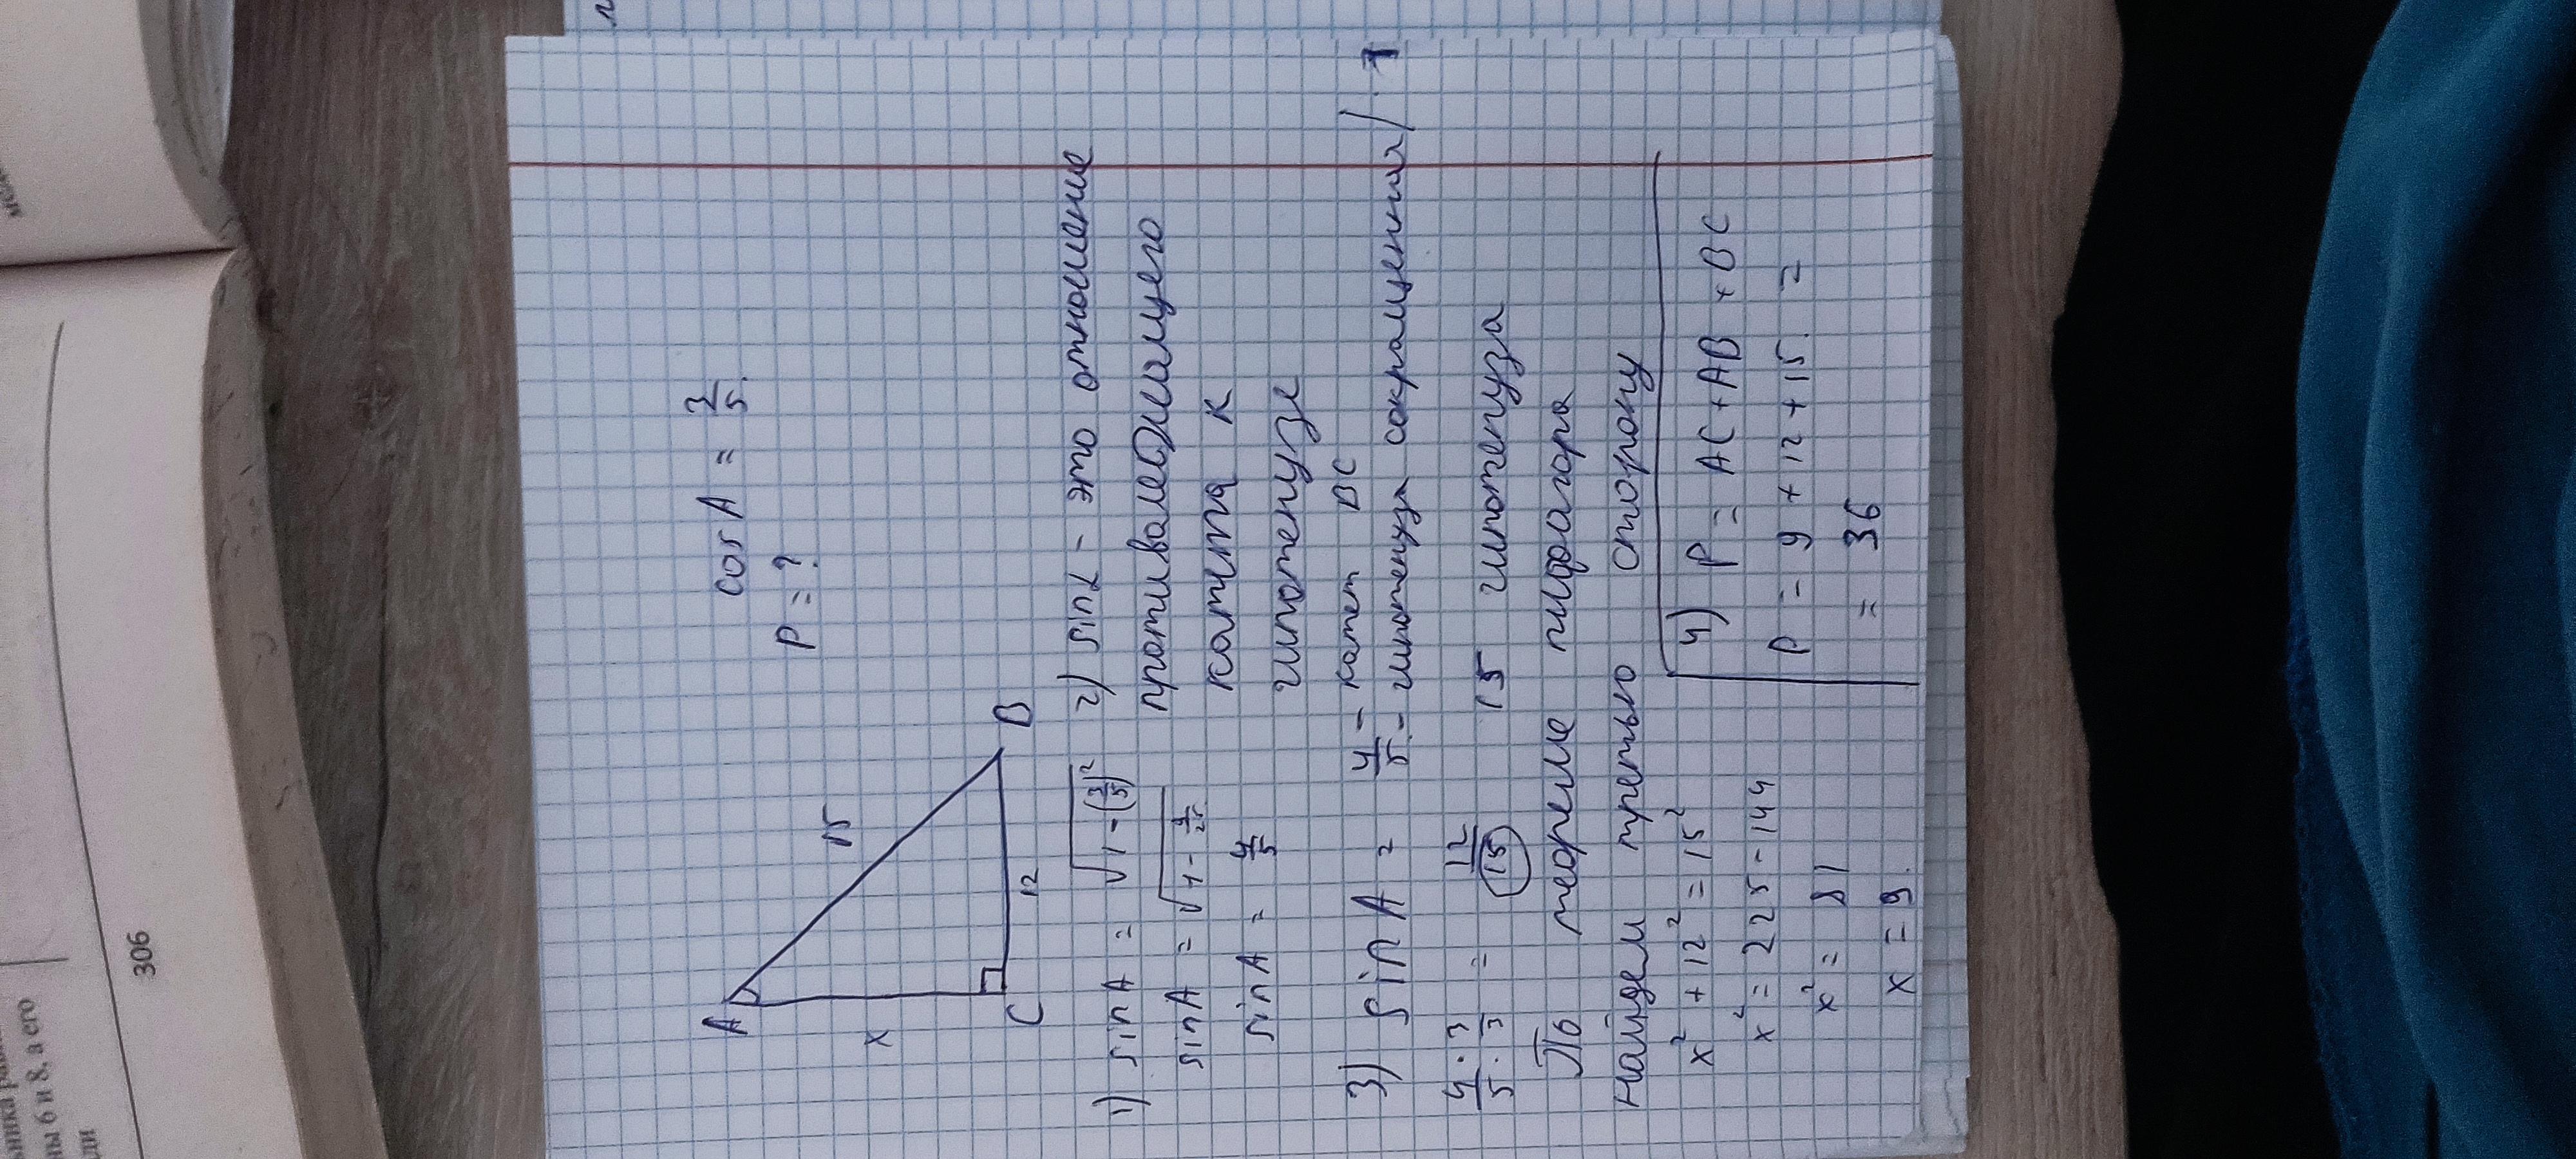 306
ны 6 и 8, а его
cos A = 3/5.
P = ?
A
15
x
C
12
B
1) sin A = √(1-(3/5)²)
sin A = √(1-9/25)
sin A = 4/5
2) sin α - это отношение
противолежащего
катета к
гипотенузе
3) sin A = 4/5 - катет BC - гипотенуза сокращенная
4·3/5·3 = 12/15 15 гипотенуза
По теореме пифагора
найдем третью сторону
x² + 12² = 15²
x² = 225-144
x² = 81
x = 9.
4) P = AC + AB + BC
P = 9 + 12 + 15. =
= 36